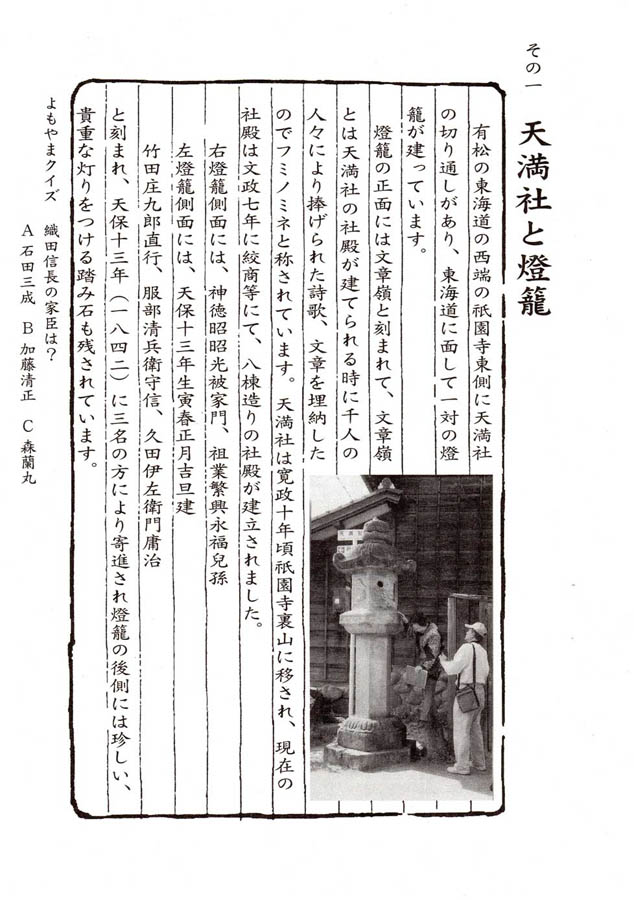 その一　天満社と燈籠
有松の東海道の西端の祇園寺東側に天満社
の切り通しがあり、東海道に面して一対の燈
籠が建っています。
燈籠の正面には文章嶺と刻まれて、文章嶺
とは天満社の社殿が建てられる時に千人の
人々により捧げられた詩歌、文章を埋納した
のでフミノミネと称されています。天満社は寛政十年頃祇園寺裏山に移され、現在の
社殿は文政七年に絞商等にて、八棟造りの社殿が建立されました。
右燈籠側面には、神徳昭昭光被家門、祖業繁興永福兒孫
左燈籠側面には、天保十三年生寅春正月吉旦建
竹田庄九郎直行、服部清兵衛守信、久田伊左衛門庸治
と刻まれ、天保十三年（一八四二）に三名の方により寄進され燈籠の後側には珍しい、
貴重な灯りをつける踏み石も残されています。
よもやまクイズ　織田信長の家臣は？
A 石田三成　B 加藤清正　C 森蘭丸